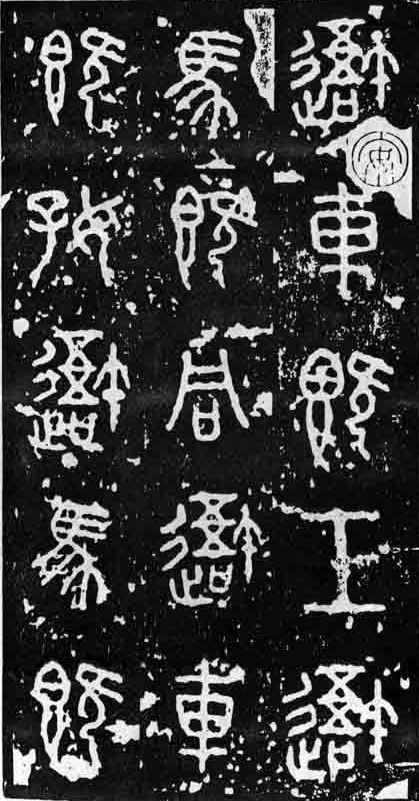 避車既工避
馬既同避車
既好避馬既